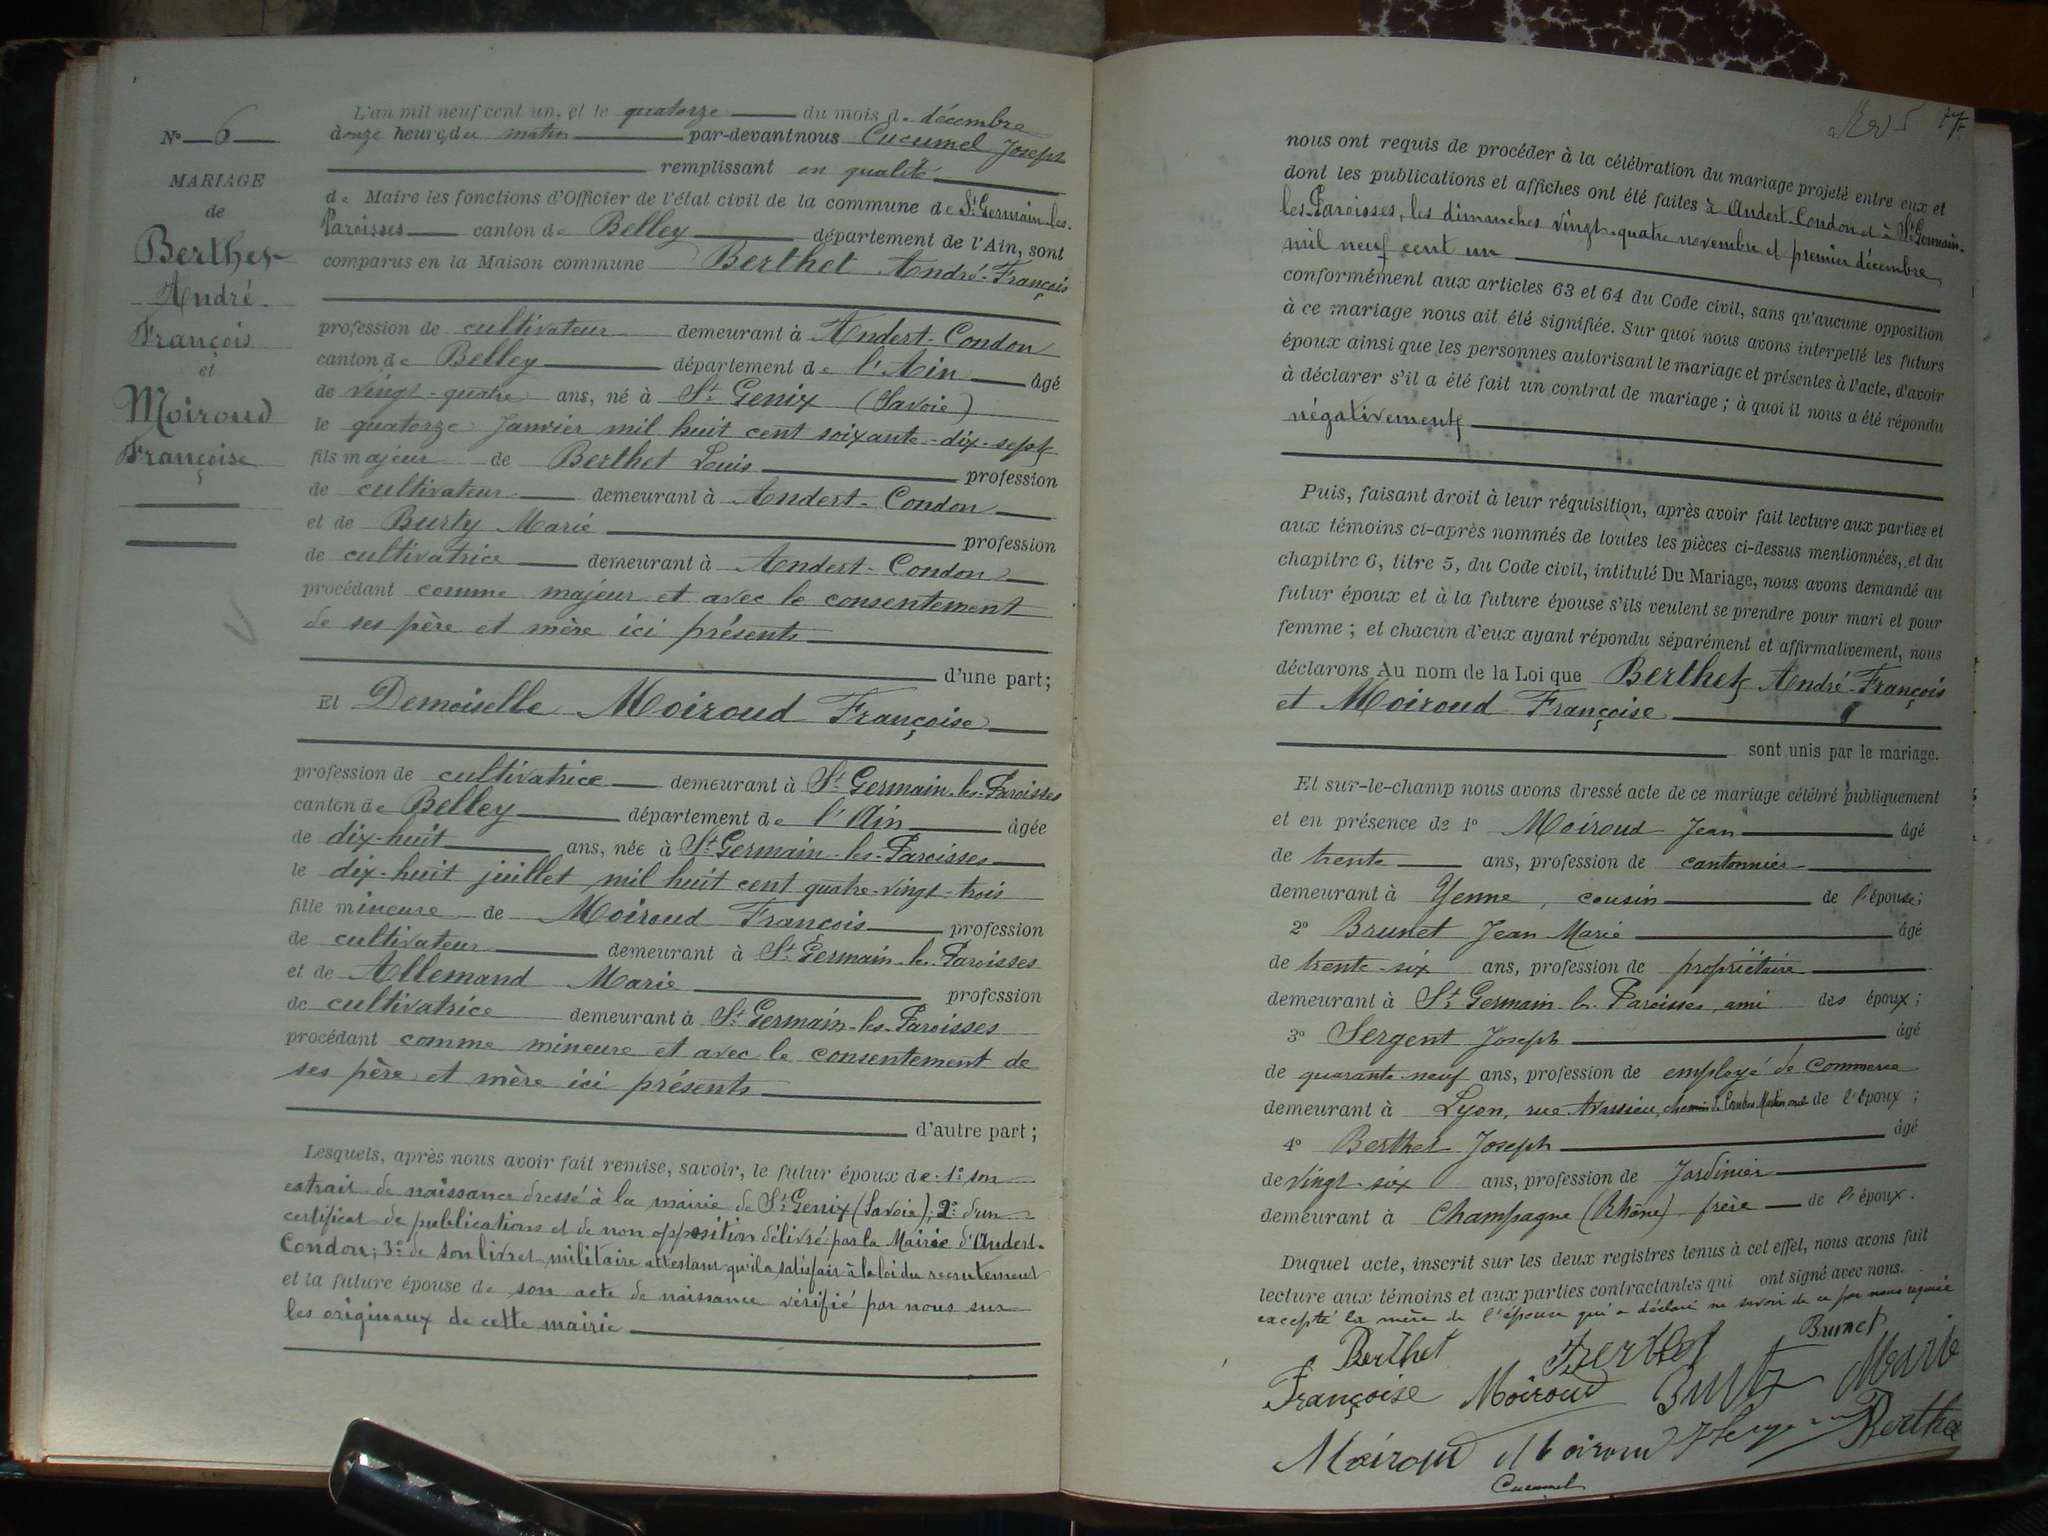 N° 6
MARIAGE
de
Berthet
André
François
et
Moiroud
Françoise
L'an mil neuf cent un, et le quatorze du mois de décembre
à onze heures du matin par-devant nous Cucumel Joseph
remplissant en qualité
de Maire les fonctions d'Officier de l'état civil de la commune de St Germain-les-
Paroisses canton de Belley département de l'Ain, sont
comparus en la Maison commune Berthet André-François
profession de cultivateur demeurant à Andert-Condon
canton de Belley département de l'Ain âgé
de vingt-quatre ans, né à St Genix (Savoie)
le quatorze Janvier mil huit cent soixante-dix-sept
fils majeur de Berthet Louis profession
de cultivateur demeurant à Andert-Condon
et de Burty Marie profession
de cultivatrice demeurant à Andert-Condon
procédant comme majeur et avec le consentement
de ses père et mère ici présents
d'une part;
Et Demoiselle Moiroud Françoise
profession de cultivatrice demeurant à St Germain-les-Paroisses
canton de Belley département de l'Ain âgée
de dix-huit ans, née à St Germain-les-Paroisses
le dix-huit juillet mil huit cent quatre-vingt-trois
fille mineure de Moiroud François profession
de cultivateur demeurant à St Germain-les-Paroisses
et de Allemand Marie profession
de cultivatrice demeurant à St Germain-les-Paroisses
procédant comme mineure et avec le consentement de
ses père et mère ici présents
d'autre part;
Lesquels, après nous avoir fait remise, savoir, le futur époux de: 1° son
extrait de naissance dressé à la mairie de St Genix (Savoie); 2° d'un
certificat de publications et de non opposition délivré par la Mairie d'Andert-
Condon; 3° de son livret militaire attestant qu'il a satisfait à la loi du recrutement
et la future épouse de son acte de naissance vérifié par nous sur
les originaux de cette mairie
nous ont requis de procéder à la célébration du mariage projeté entre eux et
dont les publications et affiches ont été faites à Andert-Condon et à St Germain-
les-Paroisses, les dimanches vingt-quatre novembre et premier décembre
mil neuf cent un
conformément aux articles 63 et 64 du Code civil, sans qu'aucune opposition
à ce mariage nous ait été signifiée. Sur quoi nous avons interpellé les futurs
époux ainsi que les personnes autorisant le mariage et présentes à l'acte, d'avoir
à déclarer s'il a été fait un contrat de mariage; à quoi il nous a été répondu
négativement
Puis, faisant droit à leur réquisition, après avoir fait lecture aux parties et
aux témoins ci-après nommés de toutes les pièces ci-dessus mentionnées, et du
chapitre 6, titre 5, du Code civil, intitulé Du Mariage, nous avons demandé au
futur époux et à la future épouse s'ils veulent se prendre pour mari et pour
femme; et chacun d'eux ayant répondu séparément et affirmativement, nous
déclarons Au nom de la Loi que Berthet André-François
et Moiroud Françoise
sont unis par le mariage.
Et sur-le-champ nous avons dressé acte de ce mariage célébré publiquement
et en présence de 1° Moiroud Jean âgé
de trente ans, profession de cantonnier
demeurant à Yenne, cousin de l'épouse;
2° Brunet Jean Marie âgé
de trente-six ans, profession de propriétaire
demeurant à St Germain-les-Paroisses, ami des époux;
3° Sergent Joseph âgé
de quarante-neuf ans, profession de employé de Commerce
demeurant à Lyon, rue de l'époux;
4° Berthet Joseph âgé
de vingt-six ans, profession de Jardinier
demeurant à Champagne (Rhône) frère de l'époux.
Duquel acte, inscrit sur les deux registres tenus à cet effet, nous avons fait
lecture aux témoins et aux parties contractantes qui ont signé avec nous.
excepté la mère de l'épouse qui a déclaré ne savoir de ce par nous requise
Berthet Berthet Brunet
Françoise Moiroud Marie
Moiroud Moiroud Berthet
Cucumel